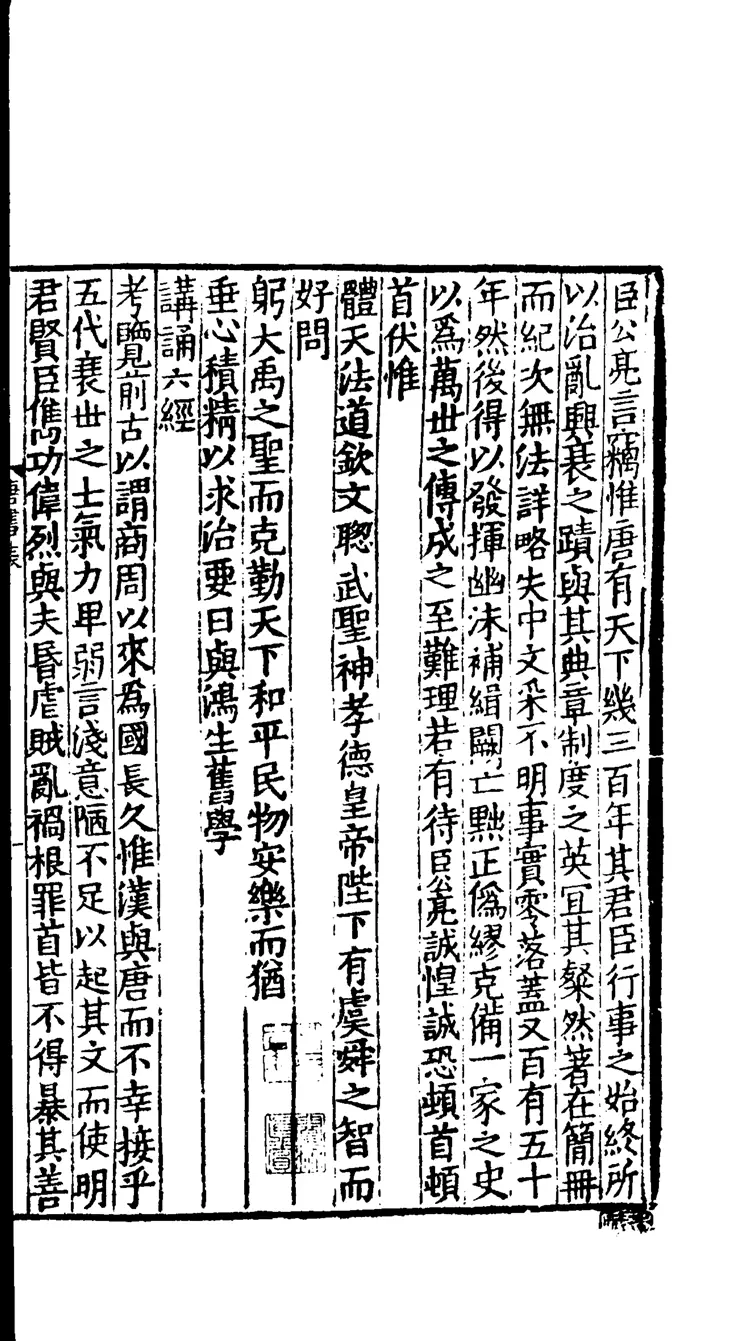 臣公亮言竊惟唐有天下幾三百年其君臣行事之始終所
以治亂興衰之蹟與其典章制度之英宜其粲然著在簡冊
而紀次無法詳略失中文采不明事實零落蓋又百有五十
年然後得以發揮幽沬補緝闕亡黜正僞繆克備一家之史
以爲萬世之傳成之至難理若有待臣公亮誠惶誠恐頓首頓
首伏惟
體天法道欽文聦武聖神孝德皇帝陛下有虞舜之智而
好問
躬大禹之聖而克勤天下和平民物安樂而猶
垂心積精以求治要日與鴻生舊學
講誦六經
考覽前古以謂商周以來爲國長久惟漢與唐而不幸接乎
五代衰世之士氣力卑弱言淺意陋不足以起其文而使明
君賢臣儁功偉烈與夫昏虐賊亂禍根罪首皆不得暴其善
唐書表